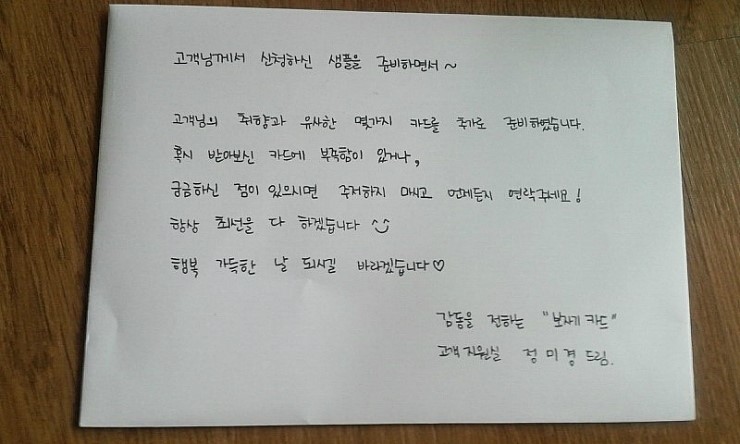 고객님께서 신청하신 샘플을 준비하면서~
고객님의 취향과 유사한 몇가지 카드를 추가로 준비하였습니다.
혹시 받아보신 카드에 부족함이 있거나,
궁금하신 점이 있으시면 주저하지 마시고 언제든지 연락주세요!
항상 최선을 다 하겠습니다 ^^
행복 가득한 날 되시길 바라겠습니다♡
감동을 전하는 "보자기 카드"
고객지원실 정미경 드림.